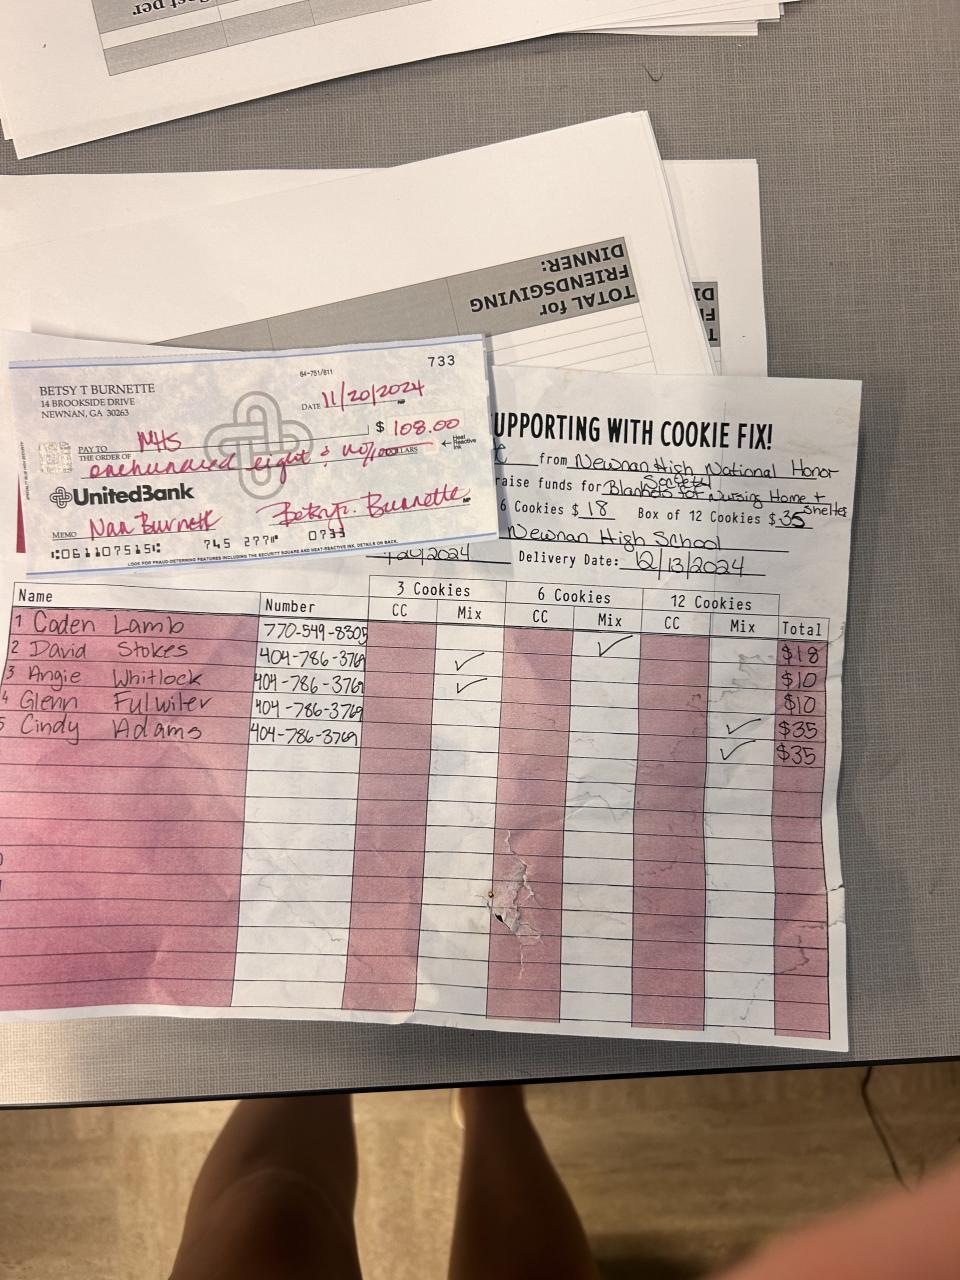 Cost per
TOTAL for
FRIENDSGIVING
DINNER:
DI
FI
T
733
64-751/811
BETSY T BURNETTE
14 BROOKSIDE DRIVE
NEWNAN, GA 30263
DATE 11/20/2024
PAY TO
THE ORDER OF NHS $ 108.00
one hundred eight & no/100 DOLLARS
Heat
Reactive
Ink
UnitedBank
MEMO Nan Burnett Betsy T. Burnette
⑆061107515⑆ 745 277⑈ 0733
LOOK FOR FRAUD-DETERRING FEATURES INCLUDING THE SECURITY SQUARE AND HEAT-REACTIVE INK. DETAILS ON BACK.
UPPORTING WITH COOKIE FIX!
from Newnan High National Honor
Society
raise funds for Blankets for Nursing Home +
Shelter
6 Cookies $ 18 Box of 12 Cookies $ 35
Newnan High School
/2024 Delivery Date: 12/13/2024
Name Number 3 Cookies 6 Cookies 12 Cookies
CC Mix CC Mix CC Mix Total
1 Caden Lamb 770-549-8305 ✓ $18
2 David Stokes 404-786-3769 ✓ $10
3 Angie Whitlock 404-786-3769 ✓ $10
4 Glenn Fulwiler 404-786-3769 ✓ $35
5 Cindy Adams 404-786-3769 ✓ $35